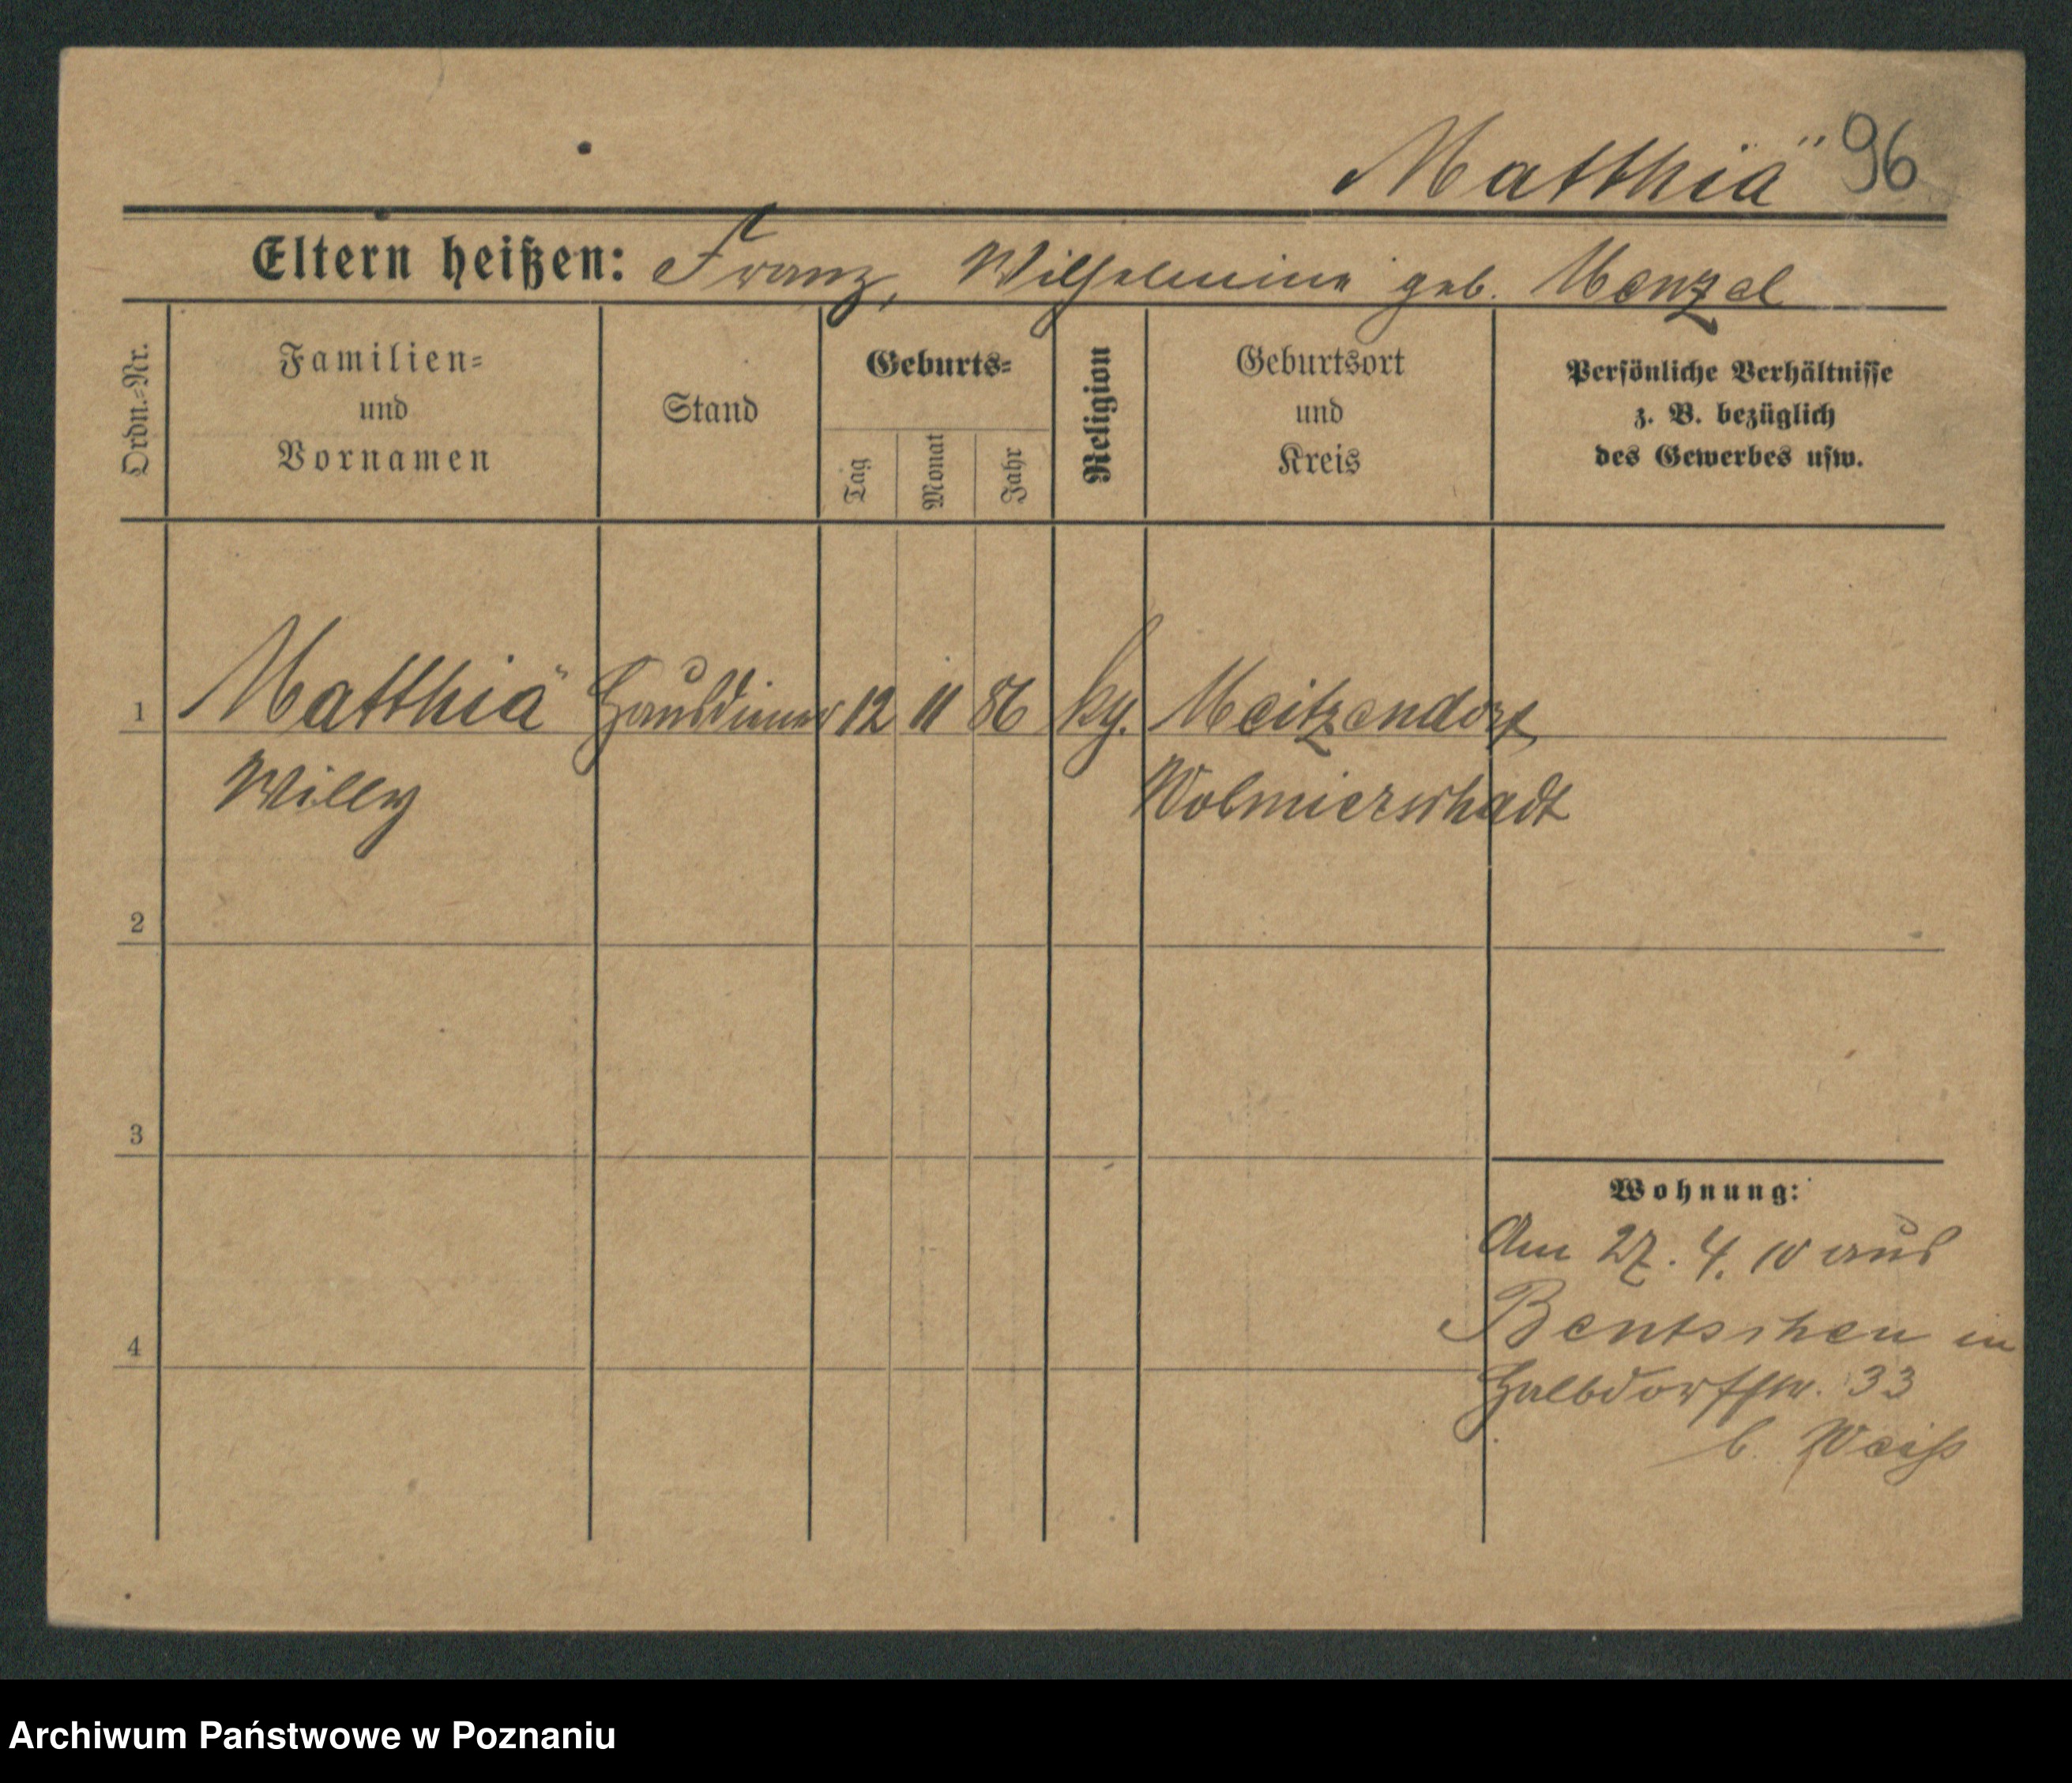 Matthiä 96
Eltern heißen: Franz, Wilhelmine geb. Menzel
Ordn.=Nr.
Familien=
und
Vornamen
Stand
Geburts=
Tag
Monat
Jahr
Religion
Geburtsort
und
Kreis
Persönliche Verhältnisse
z. B. bezüglich
des Gewerbes usw.
1 Matthiä Hausdiener 12 11 86 Meitzendorf
Willy Wolmierschadt
2
3
4
Wohnung:
Am 27. 4. 10 aus
Bentschen in
Halbdorfstr. 33
b. Weiß
Archiwum Państwowe w Poznaniu